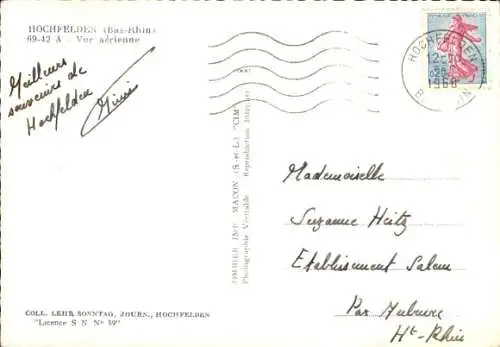 HOCHFELDEN (Bas-Rhin)
69-42 A - Vue aérienne
Meilleurs
souvenirs de
Hochfelden
Mimi
COMBIER IMP. MACON (S.-et-L.) "CIM"
Photographie Véritable Reproduction Interdite
REPUBLIQUE FRANÇAISE
HOCHFELDEN
12-30
1960
Mademoiselle
Suzanne Heitz
Etablissement Salem
Par Aubure
Ht-Rhin
COLL. LEHR SONNTAG, JOURN., HOCHFELDEN
"Licence S N N° 59"